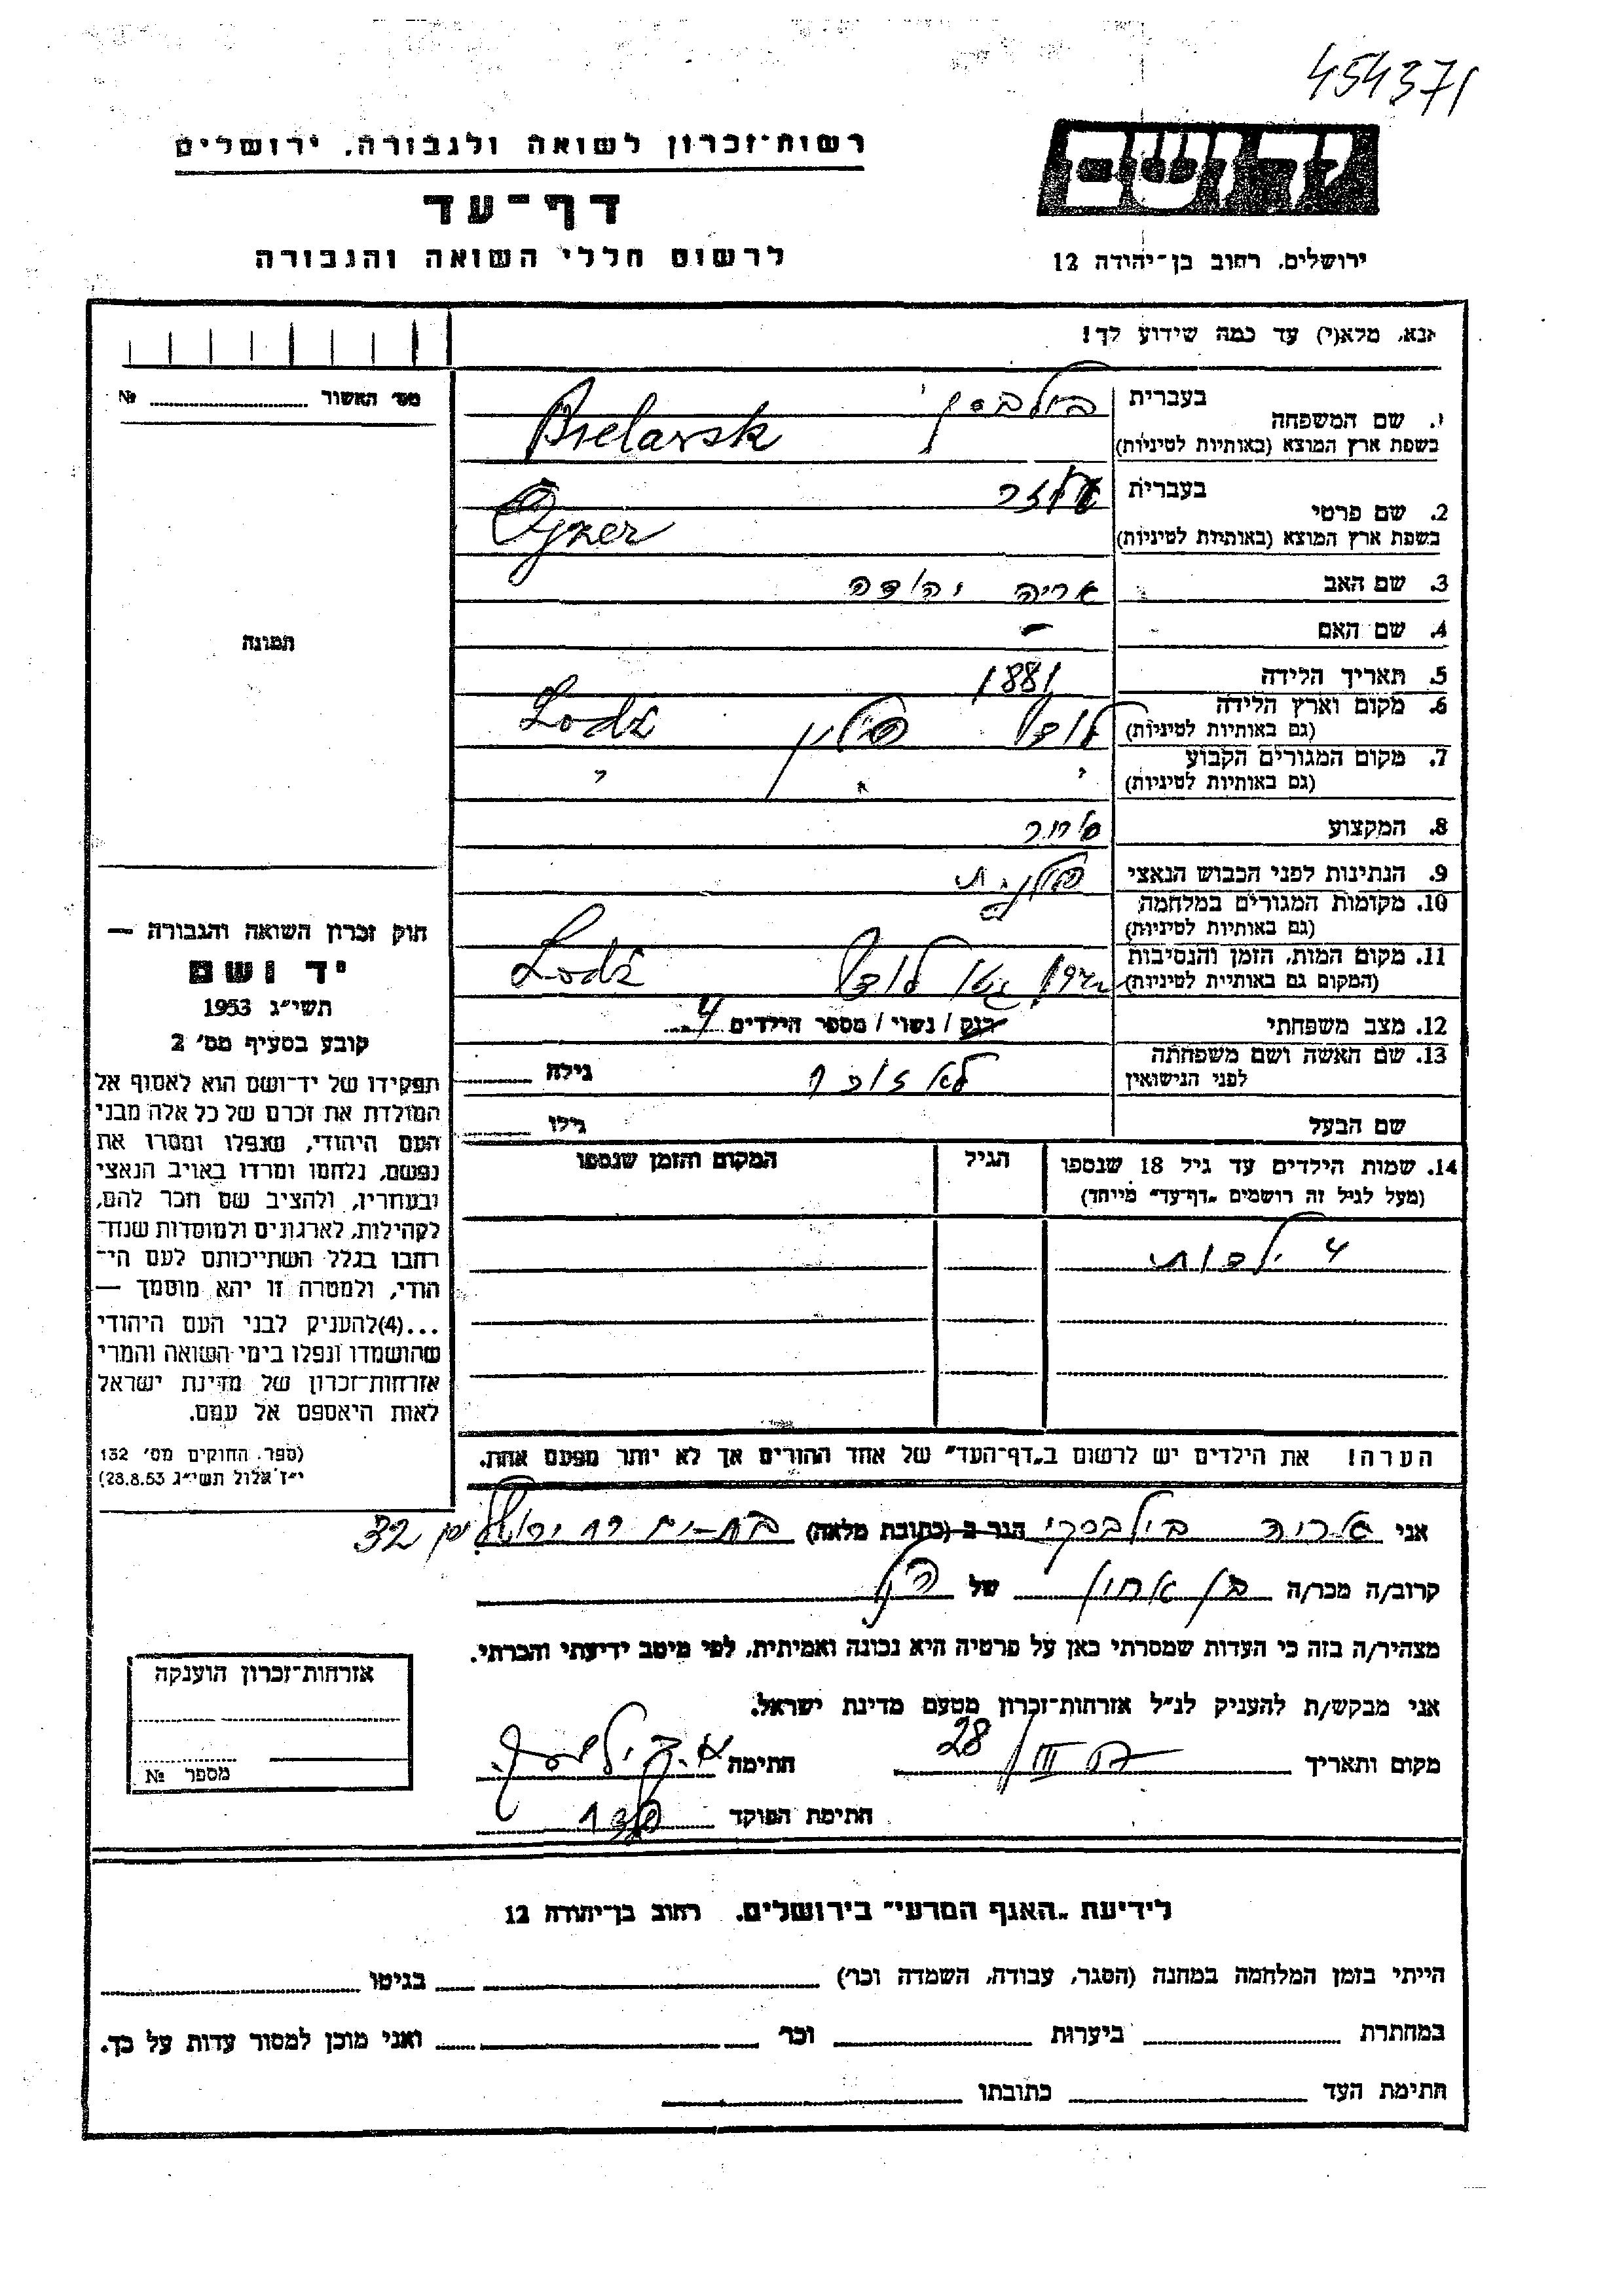 454371
רשות־זכרון לשואה ולגבורה, ירושלים
יד ושם
דף־עד
לרשום חללי השואה והגבורה
ירושלים, רחוב בן־יהודה 12
נא, מלא(י) עד כמה שידוע לך!
מס׳ האשור № 
1. שם המשפחה
בעברית
בשפת ארץ המוצא (באותיות לטיניות) Bielawsk
2. שם פרטי
בעברית
בשפת ארץ המוצא (באותיות לטיניות)
3. שם האב אריה יהודה
4. שם האם –
5. תאריך הלידה 1881
6. מקום וארץ הלידה
(גם באותיות לטיניות) לודז׳ פולין Lodź
7. מקום המגורים הקבוע
(גם באותיות לטיניות) " " "
8. המקצוע סוחר
9. הנתינות לפני הכבוש הנאצי פולנית
10. מקומות המגורים במלחמה
(גם באותיות לטיניות)
11. מקום המות, הזמן והנסיבות
(המקום גם באותיות לטיניות) גטו לודז׳ Lodź
12. מצב משפחתי רוק / נשוי / מספר הילדים 4
13. שם האשה ושם משפחתה
לפני הנישואין לא זוכר גילה
שם הבעל גילו
14. שמות הילדים עד גיל 18 שנספו
(מעל לגיל זה רושמים „דף־עד” מיוחד)
הגיל
המקום והזמן שנספו
4 ילדות
הערה! את הילדים יש לרשום ב„דף־העד” של אחד ההורים אך לא יותר מפעם אחת.
תמונה
חוק זכרון השואה והגבורה —
יד ושם
תשי״ג 1953
קובע בסעיף מס׳ 2
תפקידו של יד־ושם הוא לאסוף אל
המולדת את זכרם של כל אלה מבני
העם היהודי, שנפלו ומסרו את
נפשם, נלחמו ומרדו באויב הנאצי
ובעוזריו, ולהציב שם וזכר להם,
לקהילות, לארגונים ולמוסדות שנח־
רבו בגלל השתייכותם לעם הי־
הודי, ולמטרה זו יהא מוסמך —
...(4)להעניק לבני העם היהודי
שהושמדו ונפלו בימי השואה והמרי
אזרחות־זכרון של מדינת ישראל
לאות היאספם אל עמם.
(ספר החוקים מס׳ 132
י״ז אלול תשי״ג 28.8.53)
אני אריה בילבסקי הגר ב (כתובת מלאה) בת-ים 32
קרוב/ה מכר/ה בן אחיו של הנ״ל
מצהיר/ה בזה כי העדות שמסרתי כאן על פרטיה היא נכונה ואמיתית, לפי מיטב ידיעתי והכרתי.
אני מבקש/ת להעניק לנ״ל אזרחות־זכרון מטעם מדינת ישראל.
מקום ותאריך 28/III חתימה
חתימת הפוקד
אזרחות־זכרון הוענקה
מספר №
לידיעת „האגף המדעי” בירושלים, רחוב בן־יהודה 12
הייתי בזמן המלחמה במחנה (הסגר, עבודה, השמדה וכו׳) בגיטו
במחתרת ביערות וכו׳ ואני מוכן למסור עדות על כך.
חתימת העד כתובתו